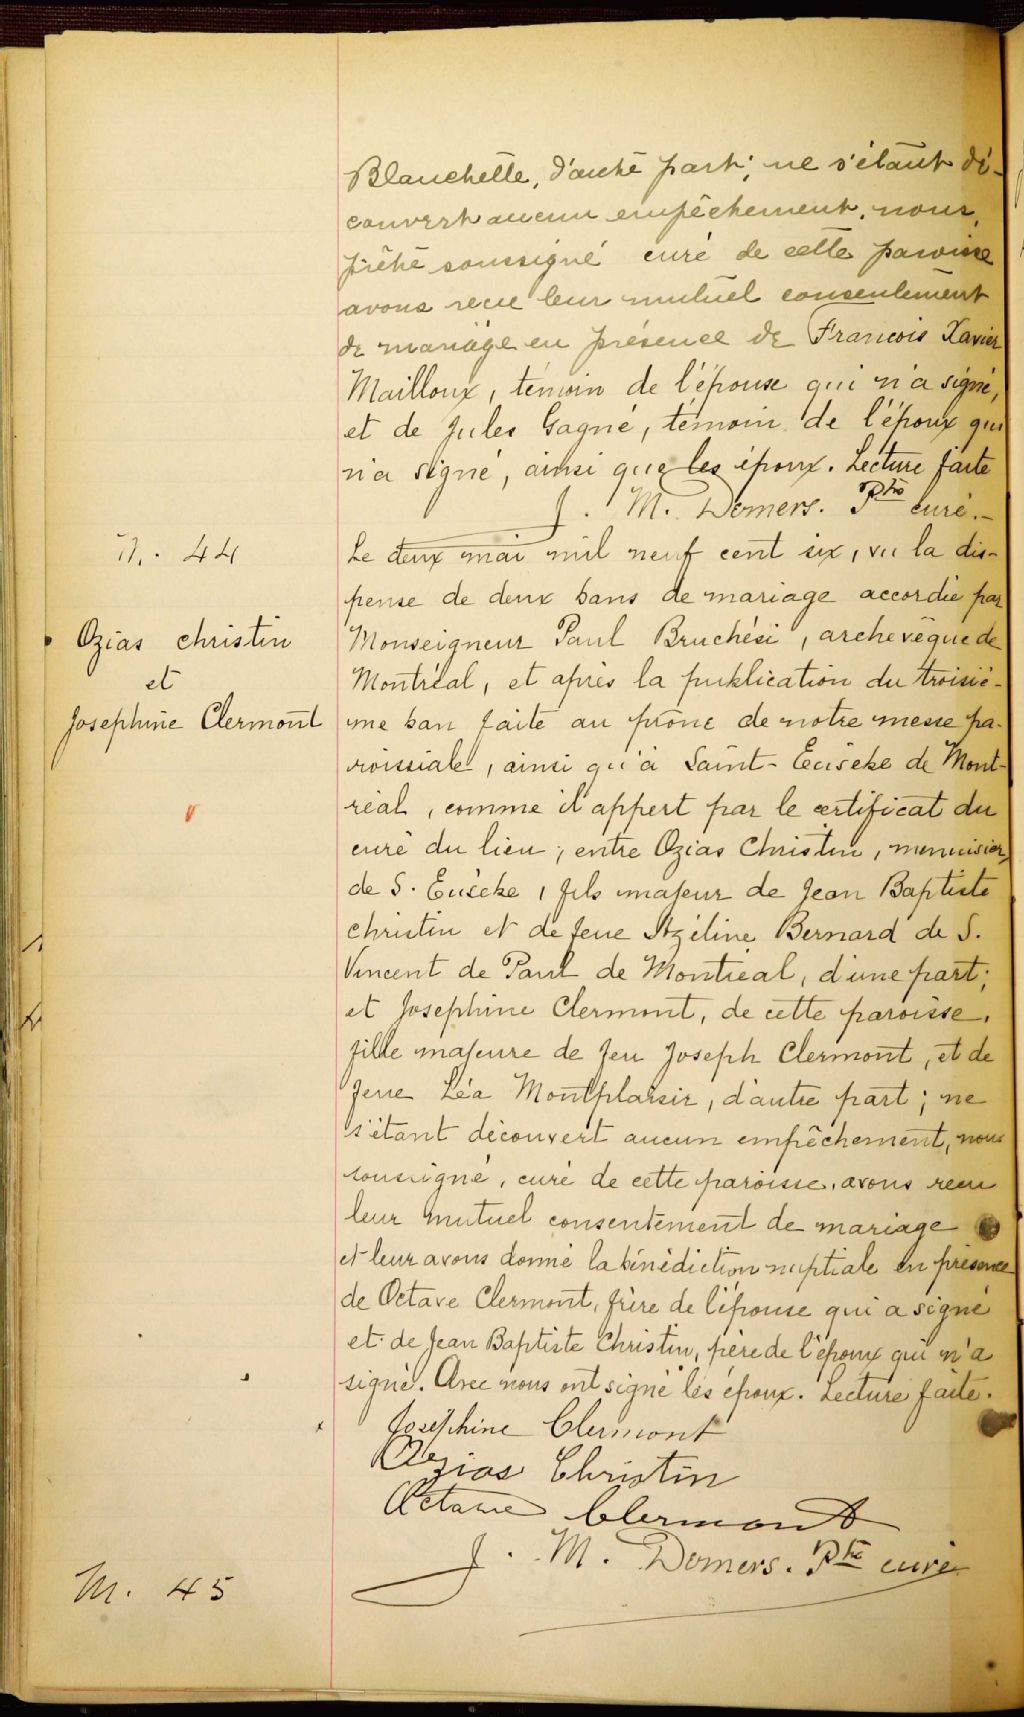 Blanchette, d'autre part; ne s'étant dé-
couvert aucun empêchement, nous,
prêtre soussigné curé de cette paroisse
avons reçu leur mutuel consentement
de mariage en présence de Francois Xavier
Mailloux, témoin de l'épouse qui n'a signé,
et de Jules Gagné, témoin de l'époux qui
n'a signé, ainsi que les époux. Lecture faite
J. M. Demers. Ptre curé.-
M. 44
Ozias Christin
et
Josephine Clermont
Le deux mai mil neuf cent six, vu la dis-
pense de deux bans de mariage accordée par
Monseigneur Paul Bruchési, archevêque de
Montréal, et après la publication du troisiè-
me ban faite au prône de notre messe pa-
roissiale, ainsi qu'à Saint-Eusèbe de Mont-
réal, comme il appert par le certificat du
curé du lieu, entre Ozias Christin, menuisier,
de S. Eusèbe, fils majeur de Jean Baptiste
Christin et de feue Azéline Bernard de S.
Vincent de Paul de Montréal, d'une part;
et Josephine Clermont, de cette paroisse,
fille majeure de feu Joseph Clermont, et de
feue Léa Montplaisir, d'autre part; ne
s'étant découvert aucun empêchement, nous
soussigné, curé de cette paroisse, avons reçu
leur mutuel consentement de mariage
et leur avons donné la bénédiction nuptiale en présence
de Octave Clermont, frère de l'épouse qui a signé
et de Jean Baptiste Christin, père de l'époux qui n'a
signé. Avec nous ont signé les époux. Lecture faite.
Joséphine Clermont
Ozias Christin
Octave Clermont
J. M. Demers. Ptre curé
M. 45